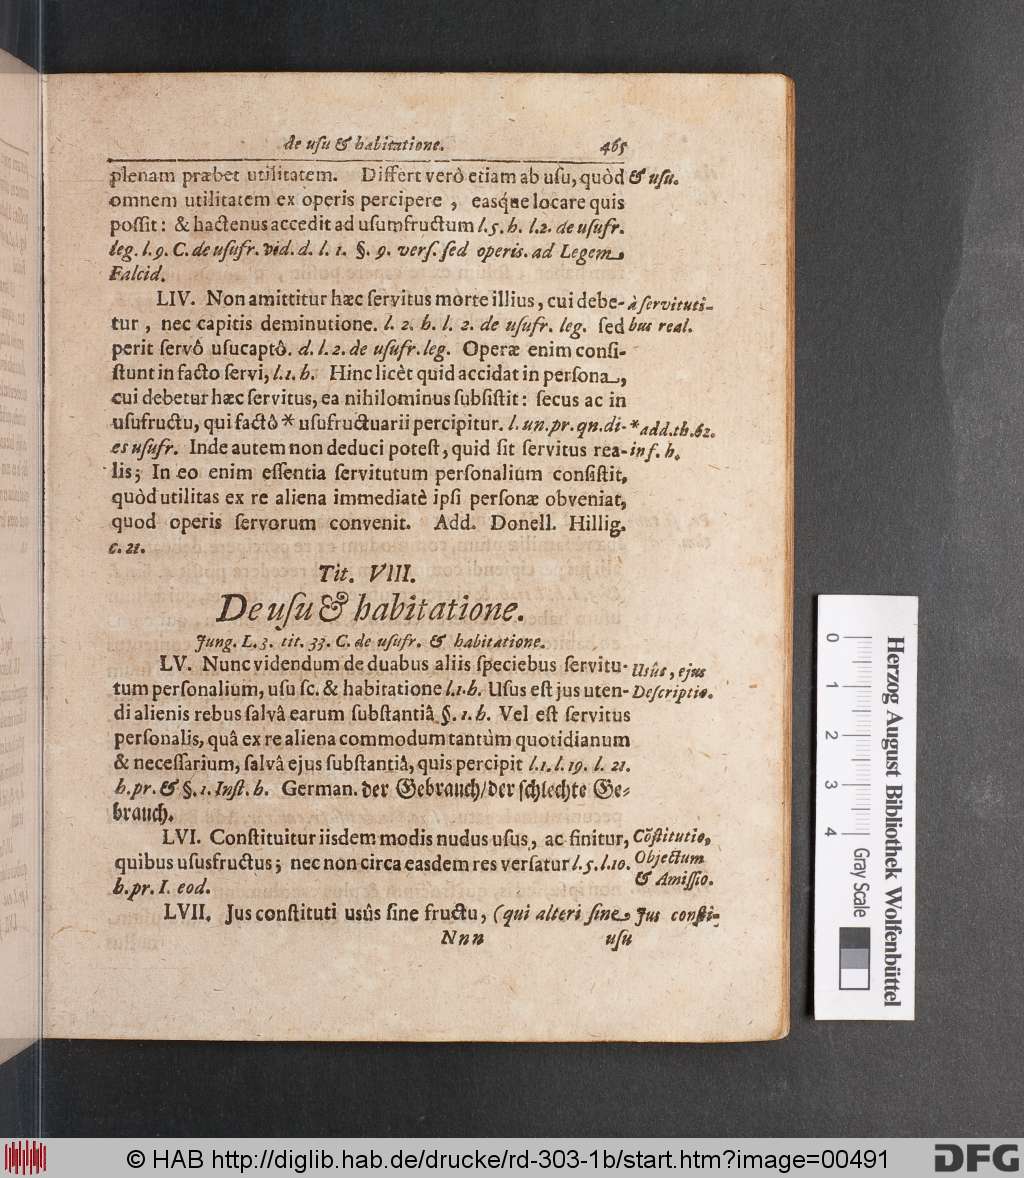 de uſu & habitatione. 465
plenam præbet utilitatem. Differt verò etiam ab uſu, quòd & uſu.
omnem utilitatem ex operis percipere , easq́ue locare quis
poſſit: & hactenus accedit ad usumfructum l. 5. h. l. 2. de uſufr.
leg. l. 9. C. de uſufr. vid. d. l. 1. §. 9. verſ. ſed operis. ad Legem
Falcid.
LIV. Non amittitur hæc ſervitus morte illius, cui debe- à ſervituti-
tur , nec capitis deminutione. l. 2. h. l. 2. de uſufr. leg. ſed bus real.
perit ſervô uſucaptô. d. l. 2. de uſufr. leg. Operæ enim conſi-
ſtunt in facto ſervi, l. 1. h. Hinc licèt quid accidat in perſona,
cui debetur hæc ſervitus, ea nihilominus ſubſiſtit: ſecus ac in
uſufructu, qui factô * uſufructuarii percipitur. l. un. pr. qn. di- * add. th. 62.
es uſufr. Inde autem non deduci poteſt, quid ſit ſervitus rea- inf. h.
lis; In eo enim eſſentia ſervitutum perſonalium conſiſtit,
quòd utilitas ex re aliena immediatè ipſi perſonæ obveniat,
quod operis ſervorum convenit. Add. Donell. Hillig.
c. 21.
Tit. VIII.
De uſu & habitatione.
Jung. L. 3. tit. 33. C. de uſufr. & habitatione.
LV. Nunc videndum de duabus aliis ſpeciebus ſervitu- Usûs, ejus
tum perſonalium, uſu ſc. & habitatione l. 1. h. Uſus eſt jus uten- Deſcriptio.
di alienis rebus ſalvâ earum ſubſtantiâ §. 1. h. Vel eſt ſervitus
perſonalis, quâ ex re aliena commodum tantùm quotidianum
& neceſſarium, ſalvâ ejus ſubſtantiâ, quis percipit l. 1. l. 19. l. 21.
h. pr. & §. 1. Inſt. h. German. der Gebrauch/der ſchlechte Ge-
brauch.
LVI. Conſtituitur iisdem modis nudus uſus, ac finitur, Cõſtitutio,
quibus uſusfructus; nec non circa easdem res verſatur l. 5. l. 10. Objectum
h. pr. I. eod. & Amiſſio.
LVII. Jus conſtituti usûs ſine fructu, (qui alteri ſine Jus conſti-
Nnn uſu
Herzog August Bibliothek Wolfenbüttel
0 1 2 3 4 Gray Scale
© HAB http://diglib.hab.de/drucke/rd-303-1b/start.htm?image=00491
DFG